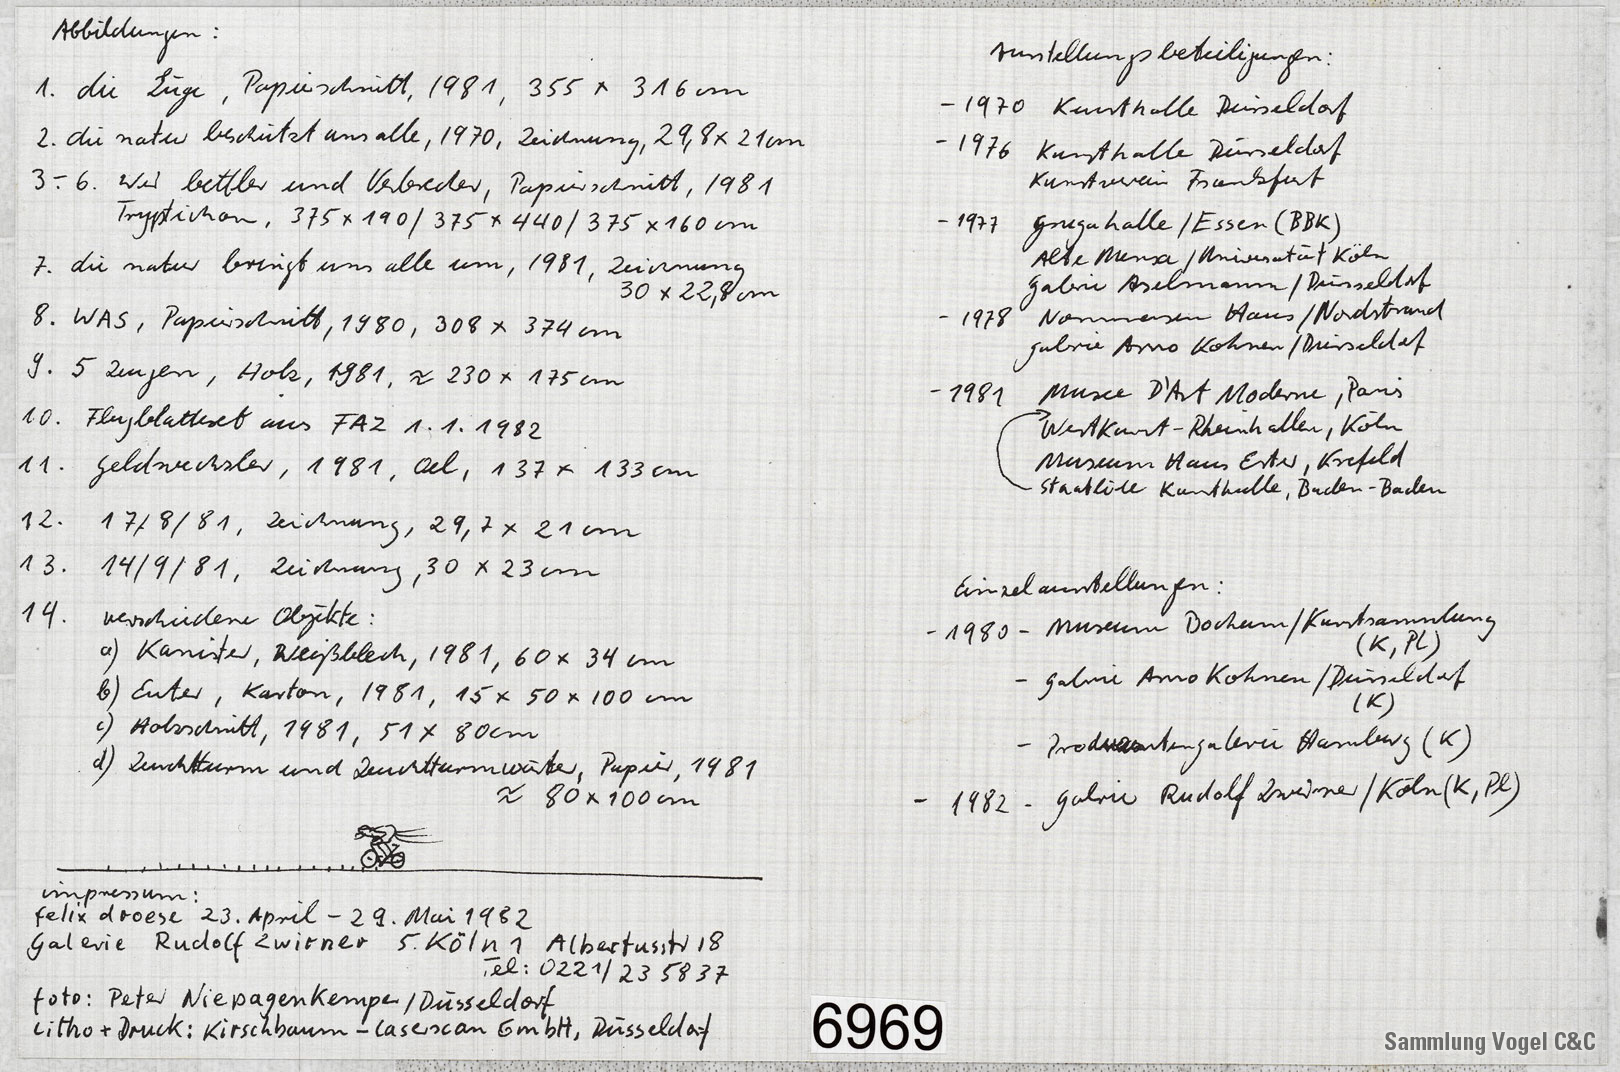 Abbildungen:
1. die Züge, Papierschnitt, 1981, 355 x 316 cm
2. die natur beschützt uns alle, 1970, Zeichnung, 29,8 x 21 cm
3.-6. Wir bettler und Verbrecher, Papierschnitt, 1981
Tryptichon, 375 x 190 / 375 x 440 / 375 x 160 cm
7. die natur bringt uns alle um, 1981, Zeichnung
30 x 22,8 cm
8. WAS, Papierschnitt, 1980, 308 x 374 cm
9. 5 Zeugen, Holz, 1981, ≈ 230 x 175 cm
10. Flugblattext aus FAZ 1.1.1982
11. geldwechsler, 1981, Oel, 137 x 133 cm
12. 17/8/81, Zeichnung, 29,7 x 21 cm
13. 14/9/81, Zeichnung, 30 x 23 cm
14. verschiedene Objekte:
a) Kanister, Weißblech, 1981, 60 x 34 cm
b) Euter, Karton, 1981, 15 x 50 x 100 cm
c) Holzschnitt, 1981, 51 x 80 cm
d) Leuchtturm und Leuchtturmwärter, Papier, 1981
≈ 80 x 100 cm
impressum:
felix droese 23. April - 29. Mai 1982
Galerie Rudolf Zwirner 5. Köln 1 Albertusstr 18
Tel: 0221/235837
foto: Peter Niepagenkemper/Düsseldorf
Litho + Druck: Kirschbaum - Laserscan GmbH, Düsseldorf
Ausstellungsbeteiligungen:
- 1970 Kunsthalle Düsseldorf
- 1976 Kunsthalle Düsseldorf
Kunstverein Frankfurt
- 1977 grugahalle/Essen (BBK)
Alte Mensa/Universität Köln
galerie Aselmann/Düsseldorf
- 1978 Nommensen Haus/Nordstrand
galerie Arno Kohnen/Düsseldorf
- 1981 Musee D'Art Moderne, Paris
Westkunst-Rheinhallen, Köln
Museum Haus Ester, Krefeld
staatliche Kunsthalle, Baden-Baden
Einzelausstellungen:
- 1980 - Museum Bochum/Kunstsammlung
(K, Pl)
- galerie Arno Kohnen/Düsseldorf
(K)
- Produzentengalerie Hamburg (K)
- 1982 - galerie Rudolf Zwirner/Köln (K, Pl)
6969
Sammlung Vogel C&C